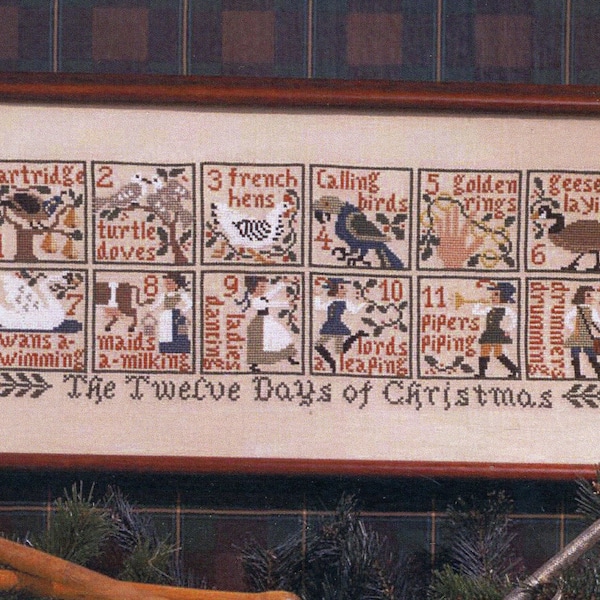 artridge
1
2
turtle
doves
3 french
hens
Calling
birds
4
5 golden
rings
geese
layi
6
7
wans a-
wimming
8
maids
a-milking
9
ladies
dancing
10
lords
a leaping
11
pipers
piping
drummers
drumming
The Twelve Days of Christmas